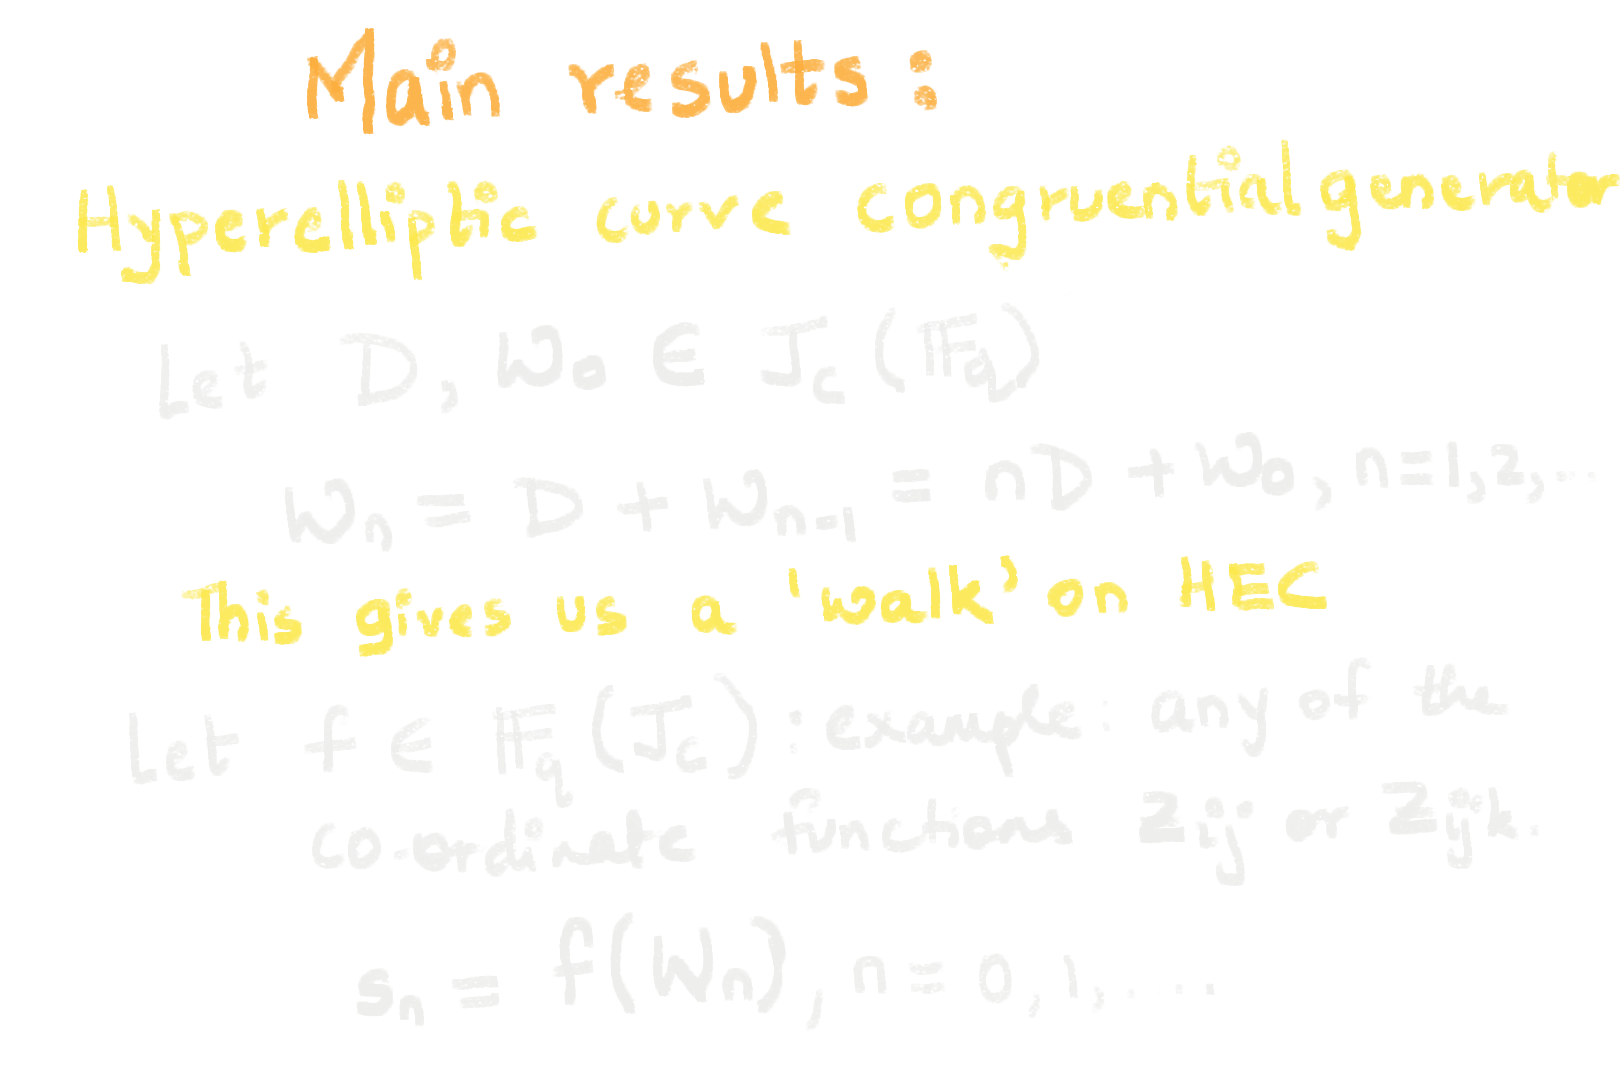 Main results :
Hyperelliptic curve congruential generator
Let D, W₀ ∈ J_C (𝔽_q)
W_n = D + W_{n-1} = nD + W₀, n=1,2,...
This gives us a 'walk' on HEC
Let f ∈ 𝔽_q (J_C) : example : any of the
co-ordinate functions z_{ij} or z_{ijk}.
s_n = f(W_n), n = 0,1,....